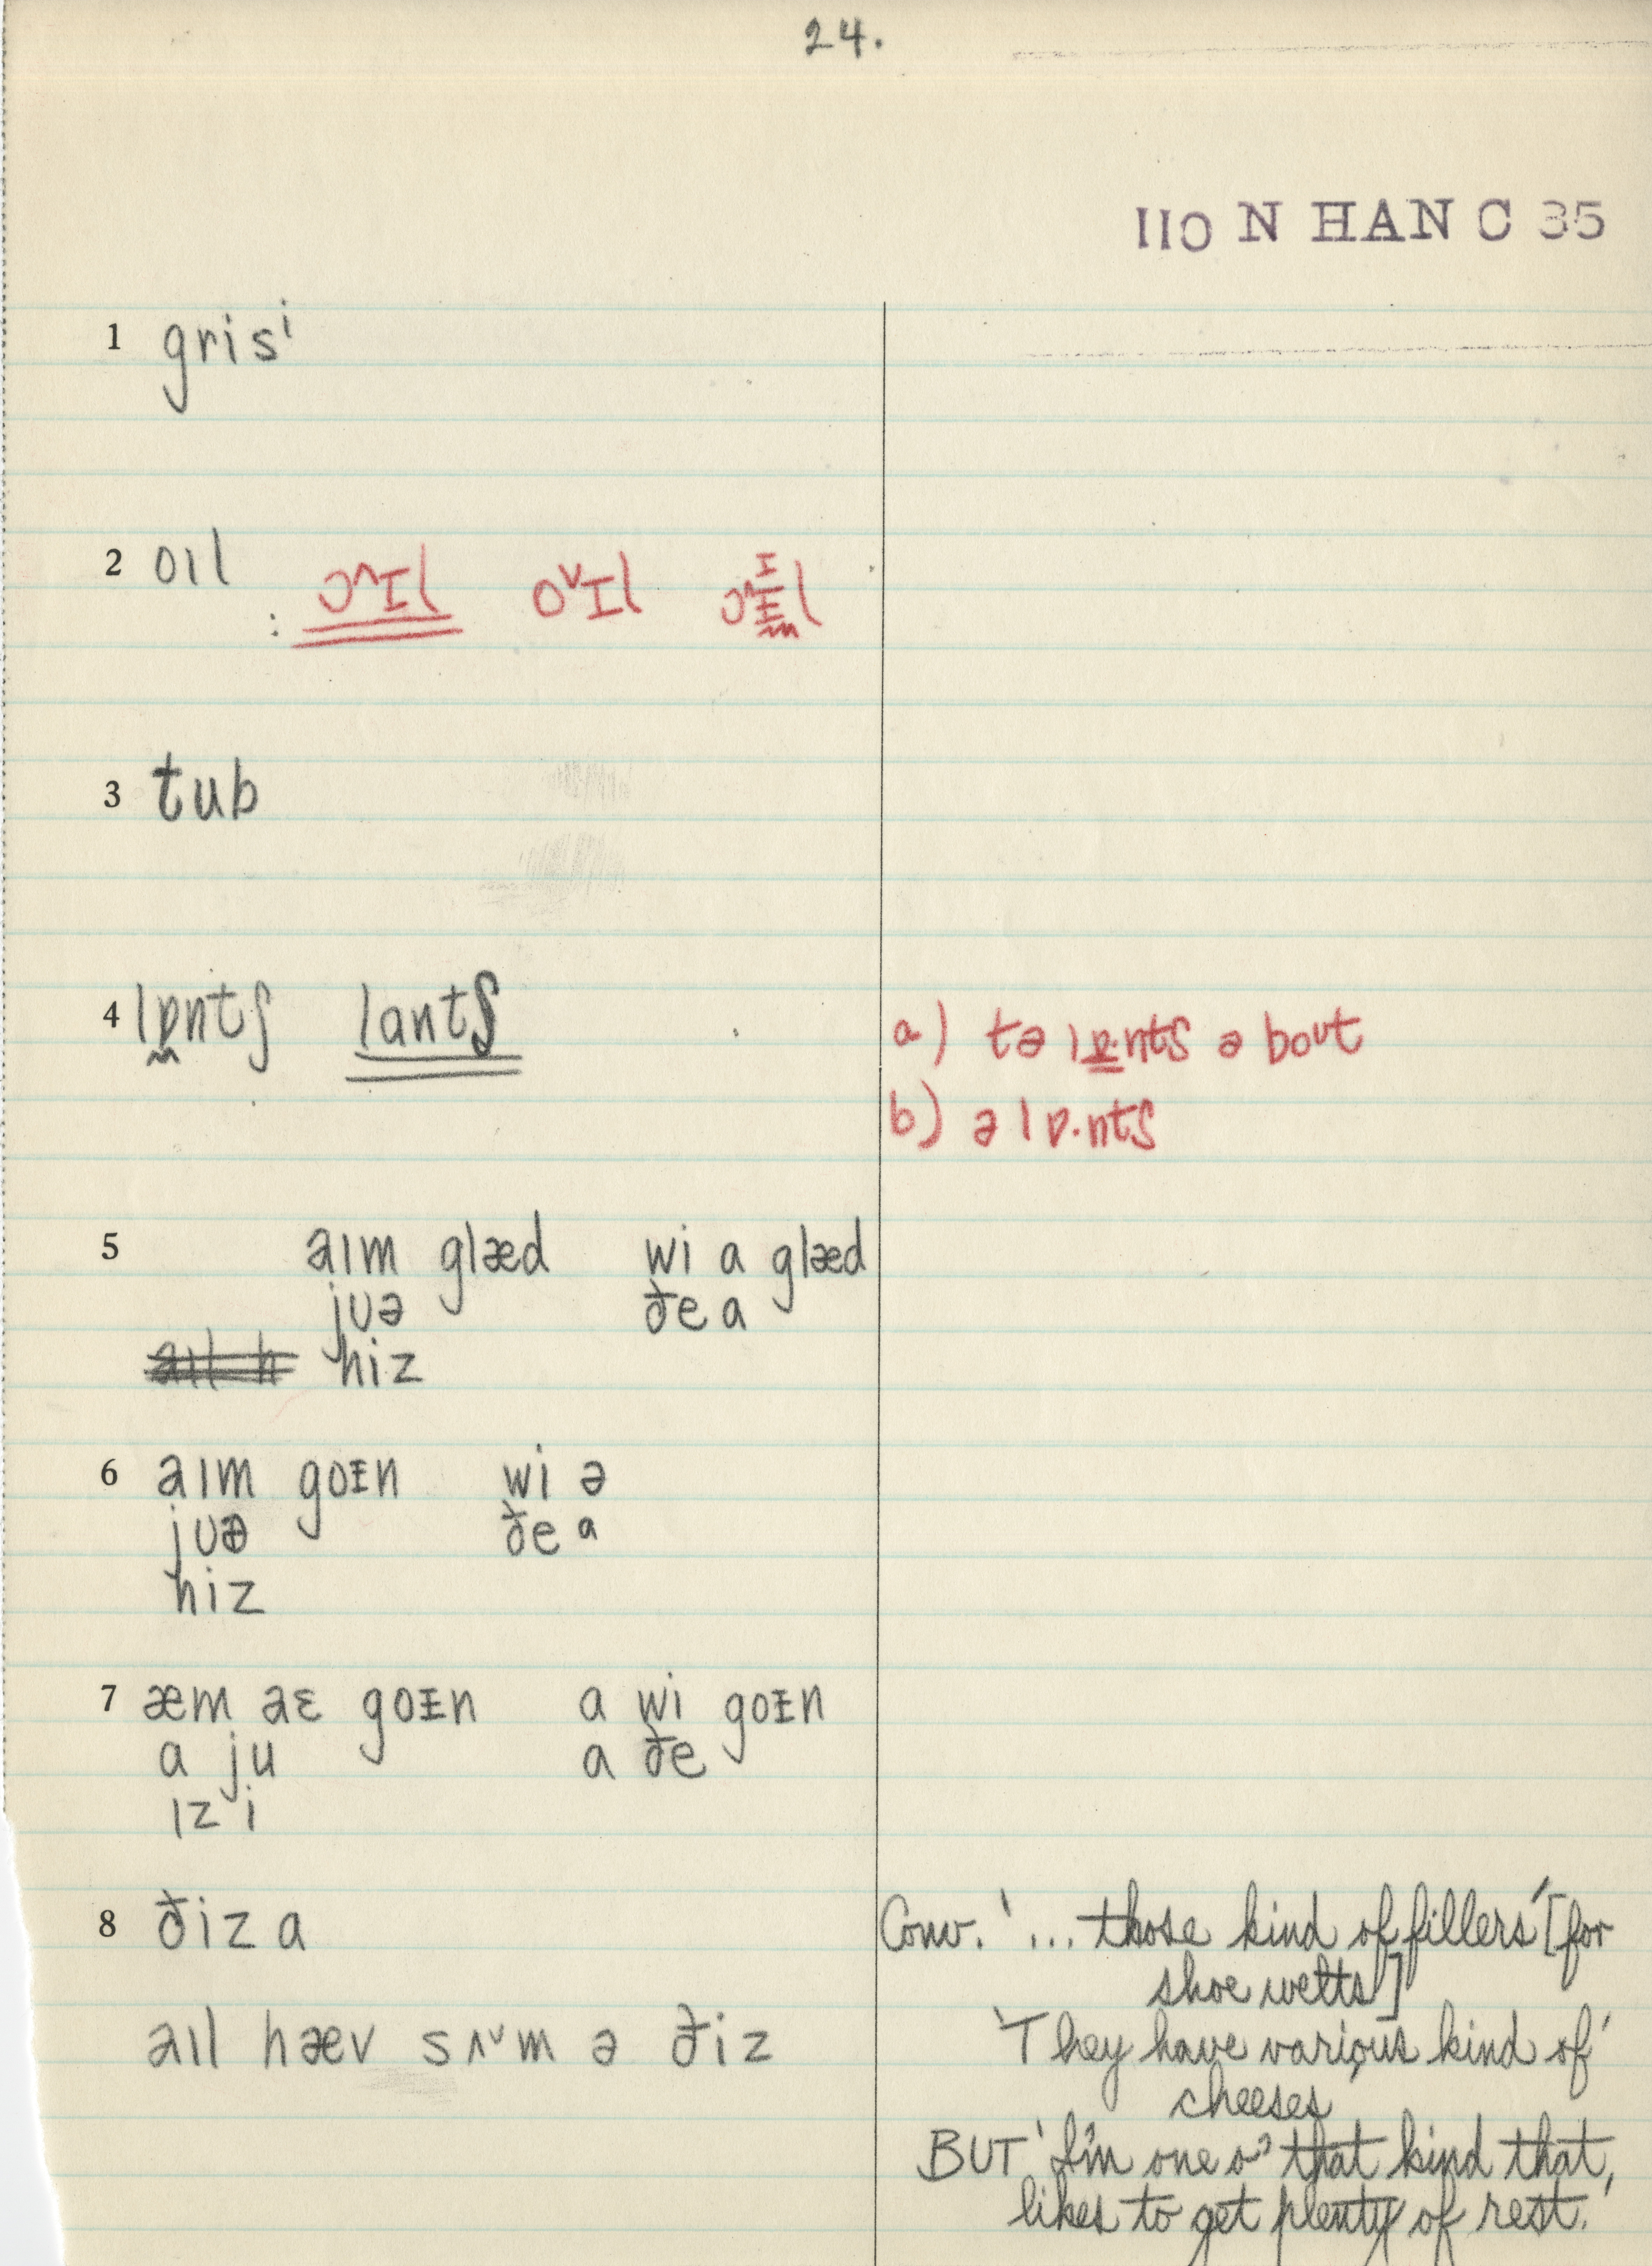 24.
110 N HAN C 35
1 grisⁱ
2 oıl : ɔ^ɪl oˇɪl
3 tub
4 lɒntʃ lantʃ
a) tə lɒ·ntʃ ə boʊt
b) ə lɒ·ntʃ
5 aım glæd wi a glæd
jʊə ðe a
hiz
6 aım goᵻn wi ə
jʊə ðe a
hiz
7 æm aɛ goᵻn a wi goᵻn
a ju a ðe
ız i
8 ðiz a
aıl hæv sʌˇm ə ðiz
Conv. '... those kind of fillers' [for
shoe welts]
'They have various kind of
cheeses'
BUT 'I'm one o' that kind that
likes to get plenty of rest.'